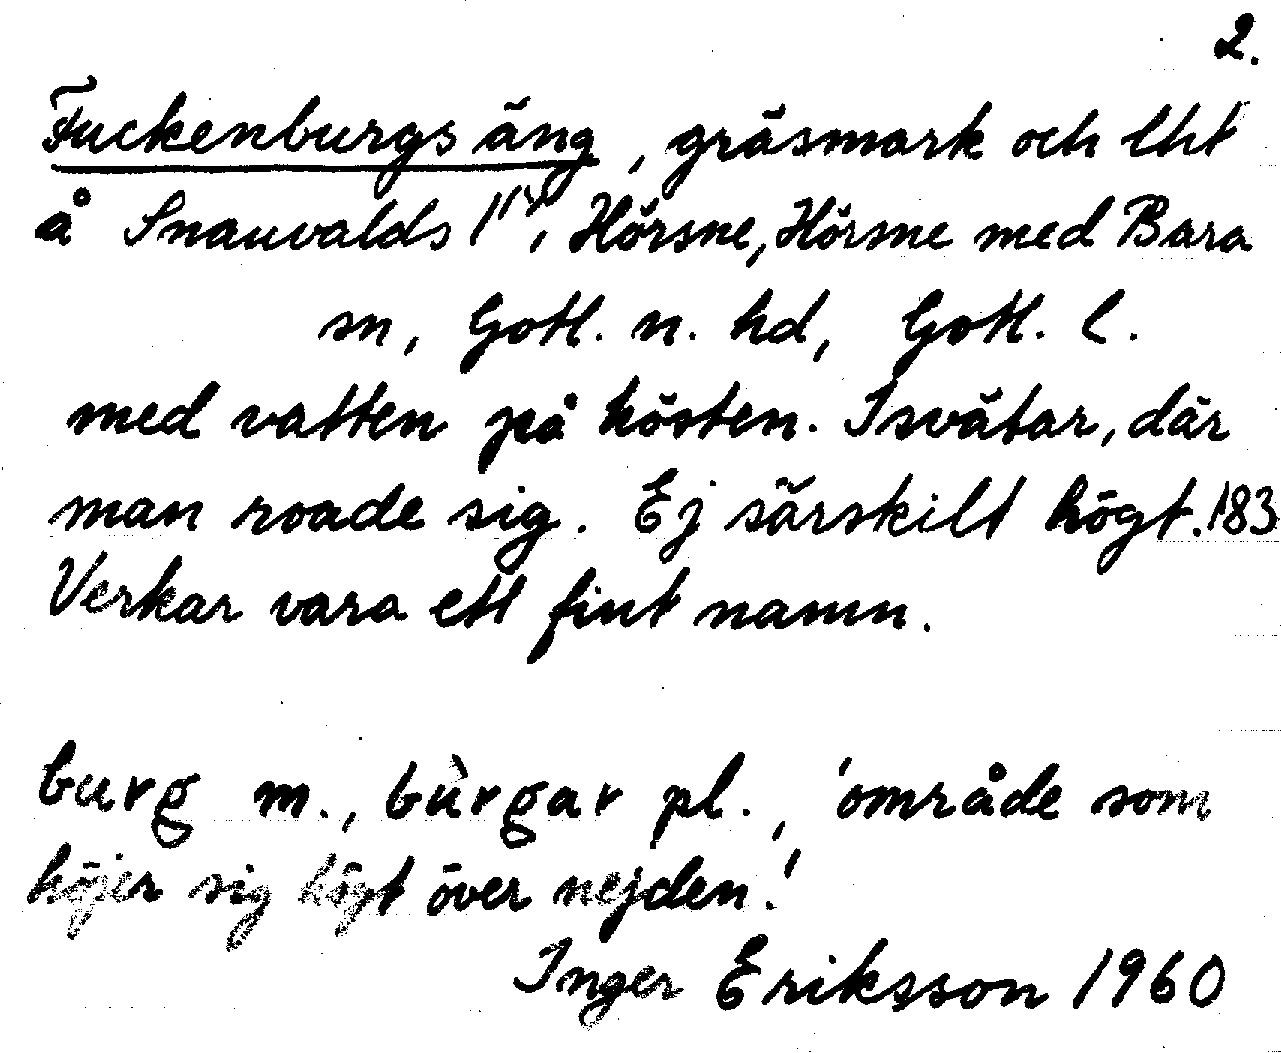 2.
Fuckenburgs äng, gräsmark och lht
å Snauvalds 1¹⁹, Hörsne, Hörsne med Bara
sn, Gotl. n. hd, Gotl. l.
med vatten på hösten. Isvätar, där
man roade sig. Ej särskilt högt. 183
Verkar vara ett fint namn.
burg m., bùrgar pl., 'område som
höjer sig högt över nejden.'
Inger Eriksson 1960